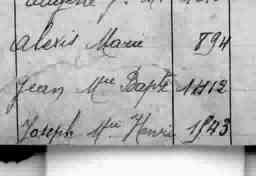 Alexis Marie 894
Jean Mie Bapte 1412
Joseph Mie Henri 1543